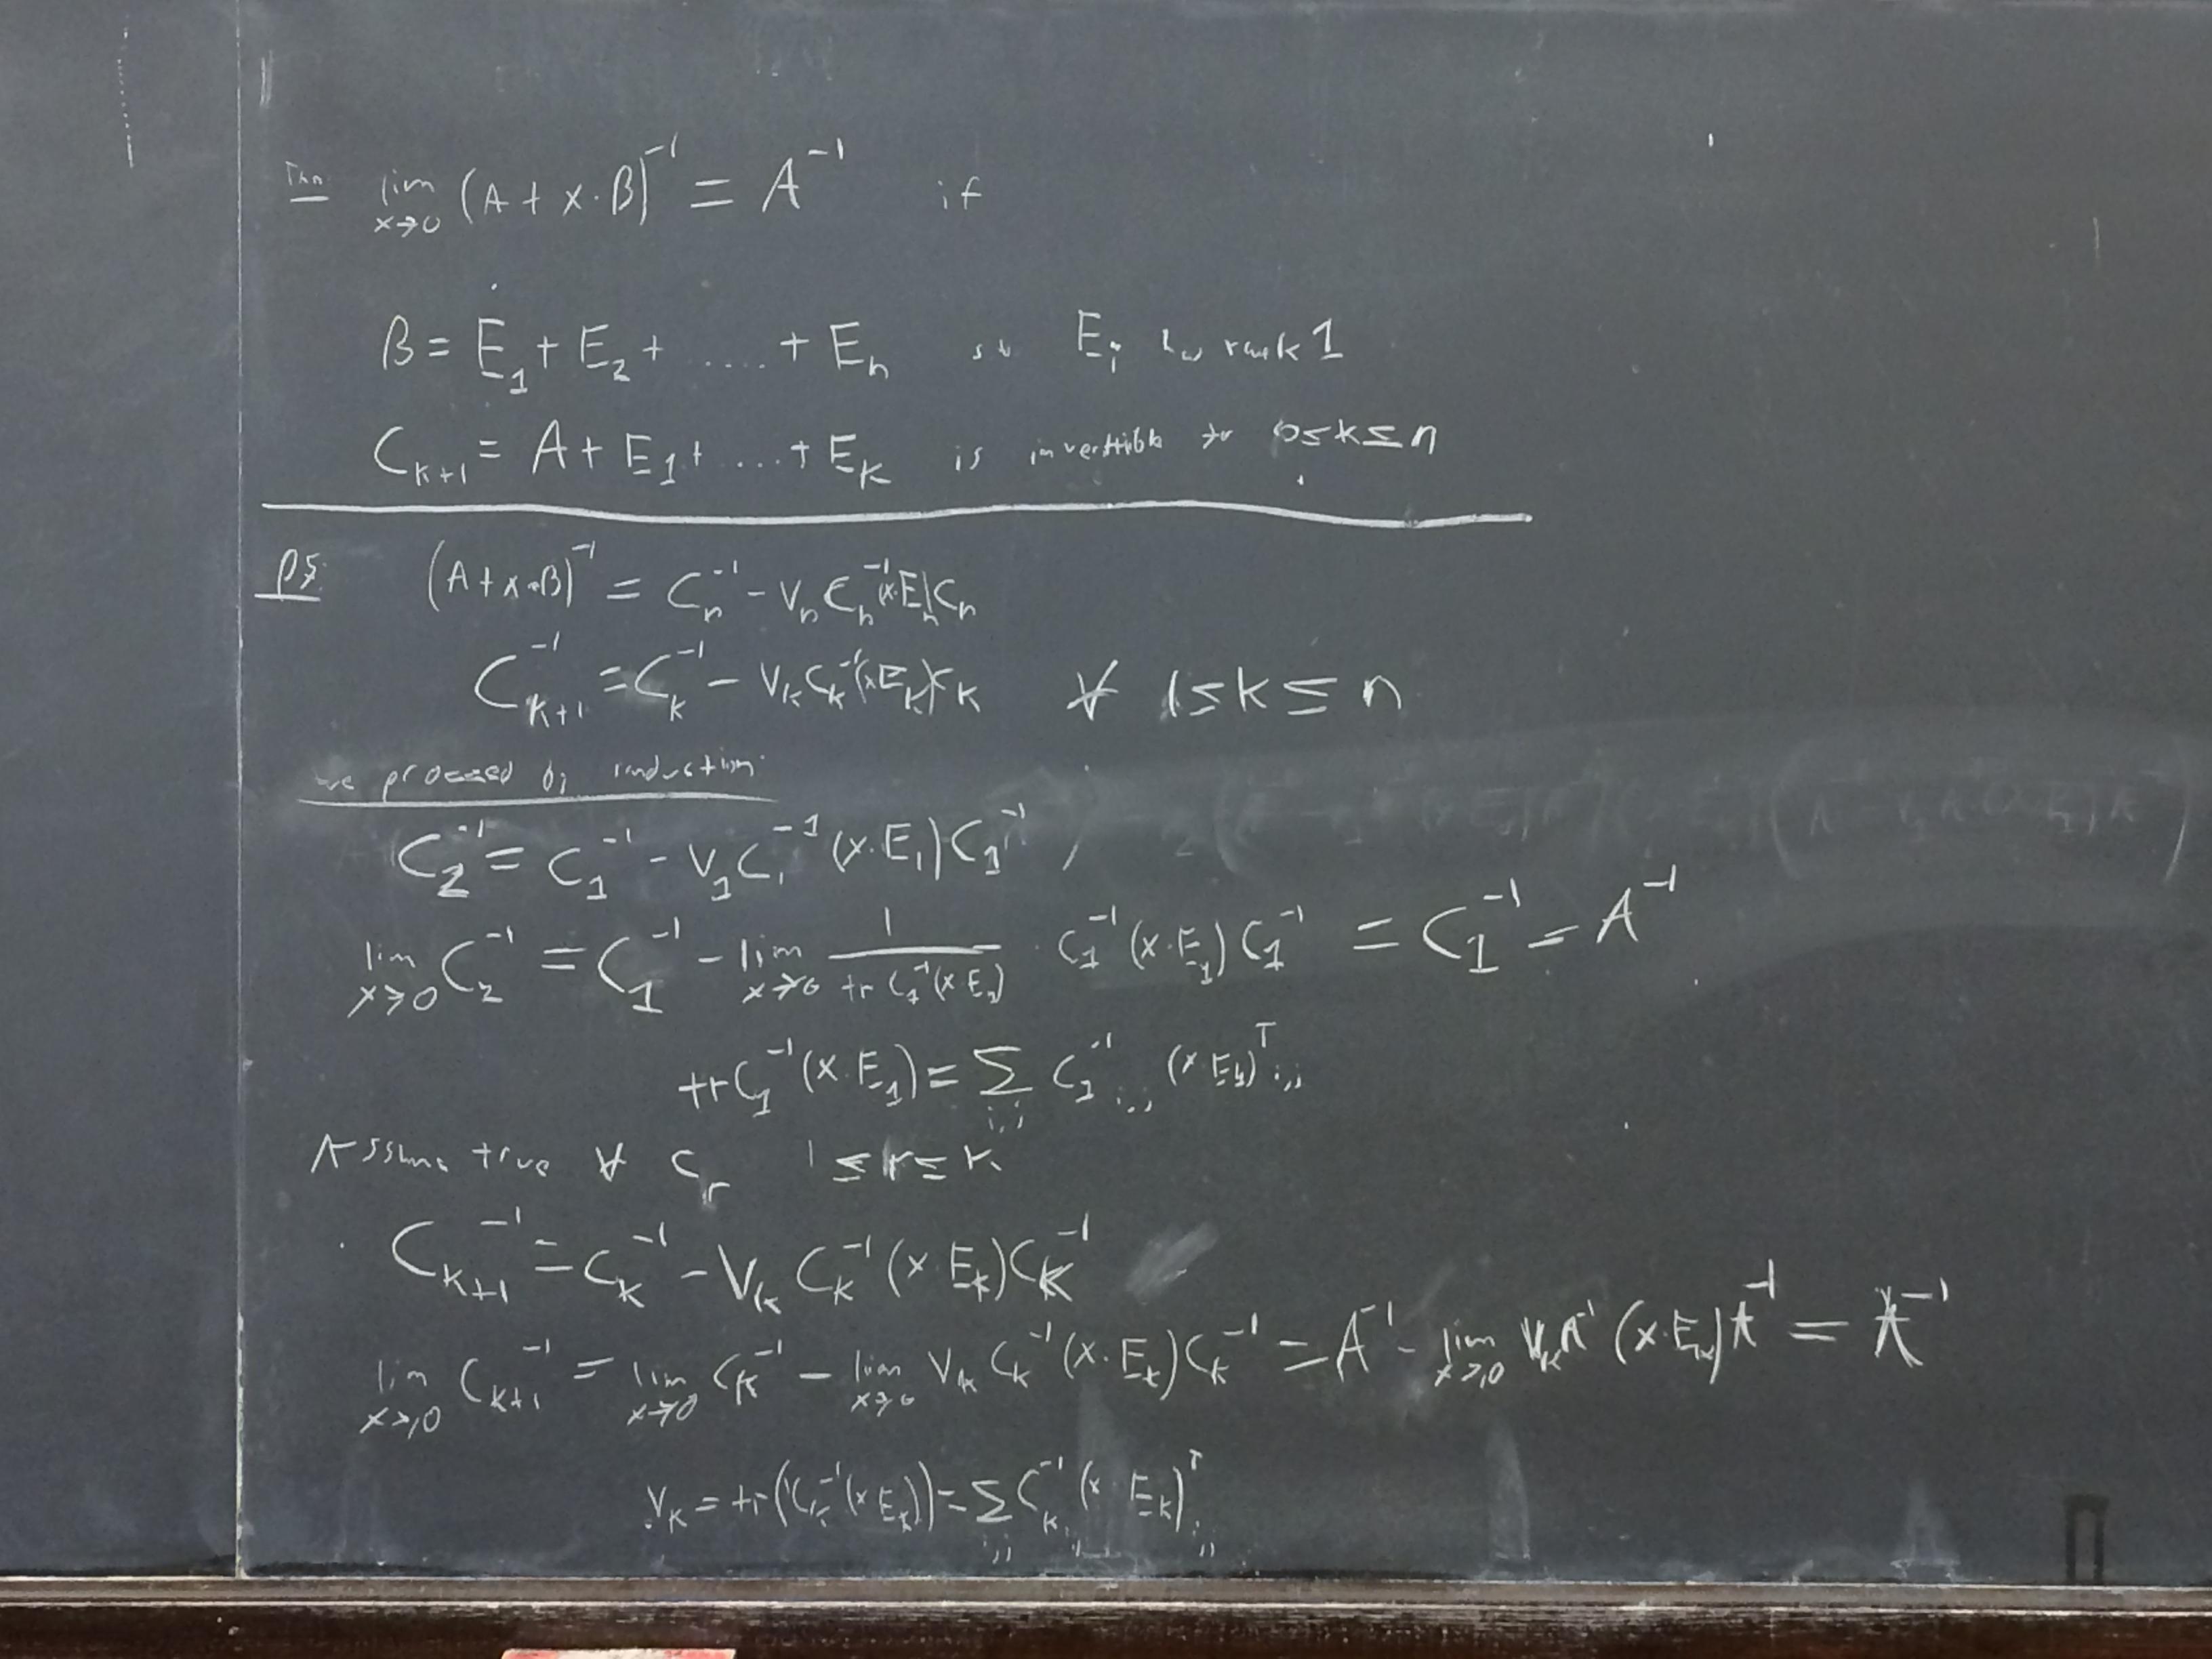 Thm lim x→0 (A + x·B)^-1 = A^-1 if
B = E_1 + E_2 + ..... + E_n st E_i has rank 1
C_k+1 = A + E_1 + ... + E_k is invertible for 0≤k≤n
pf: (A+x·B)^-1 = C_n^-1 - V_n C_n^-1 (x·E_n) C_n
C_k+1^-1 = C_k^-1 - V_k C_k^-1 (x E_k) C_k ∀ 1≤k≤n
we proceed by induction
C_2^-1 = C_1^-1 - V_1 C_1^-1 (x·E_1) C_1^-1
lim x→0 C_2^-1 = C_1^-1 - lim x→0 1/(tr C_1^-1 (x·E_1)) · C_1^-1 (x·E_1) C_1^-1 = C_1^-1 = A^-1
tr C_1^-1 (x·E_1) = Σ_i,j C_1^-1 i,j (x·E_1)^T i,j
Assume true ∀ C_r 1≤r≤k
C_k+1^-1 = C_k^-1 - V_k C_k^-1 (x·E_k) C_k^-1
lim x→0 C_k+1^-1 = lim x→0 C_k^-1 - lim x→0 V_k C_k^-1 (x·E_k) C_k^-1 = A^-1 - lim x→0 V_k A^-1 (x·E_k) A^-1 = A^-1
V_k = tr(C_k^-1 (x·E_k)) = Σ_i,j C_k^-1 i,j (x·E_k)^T i,j